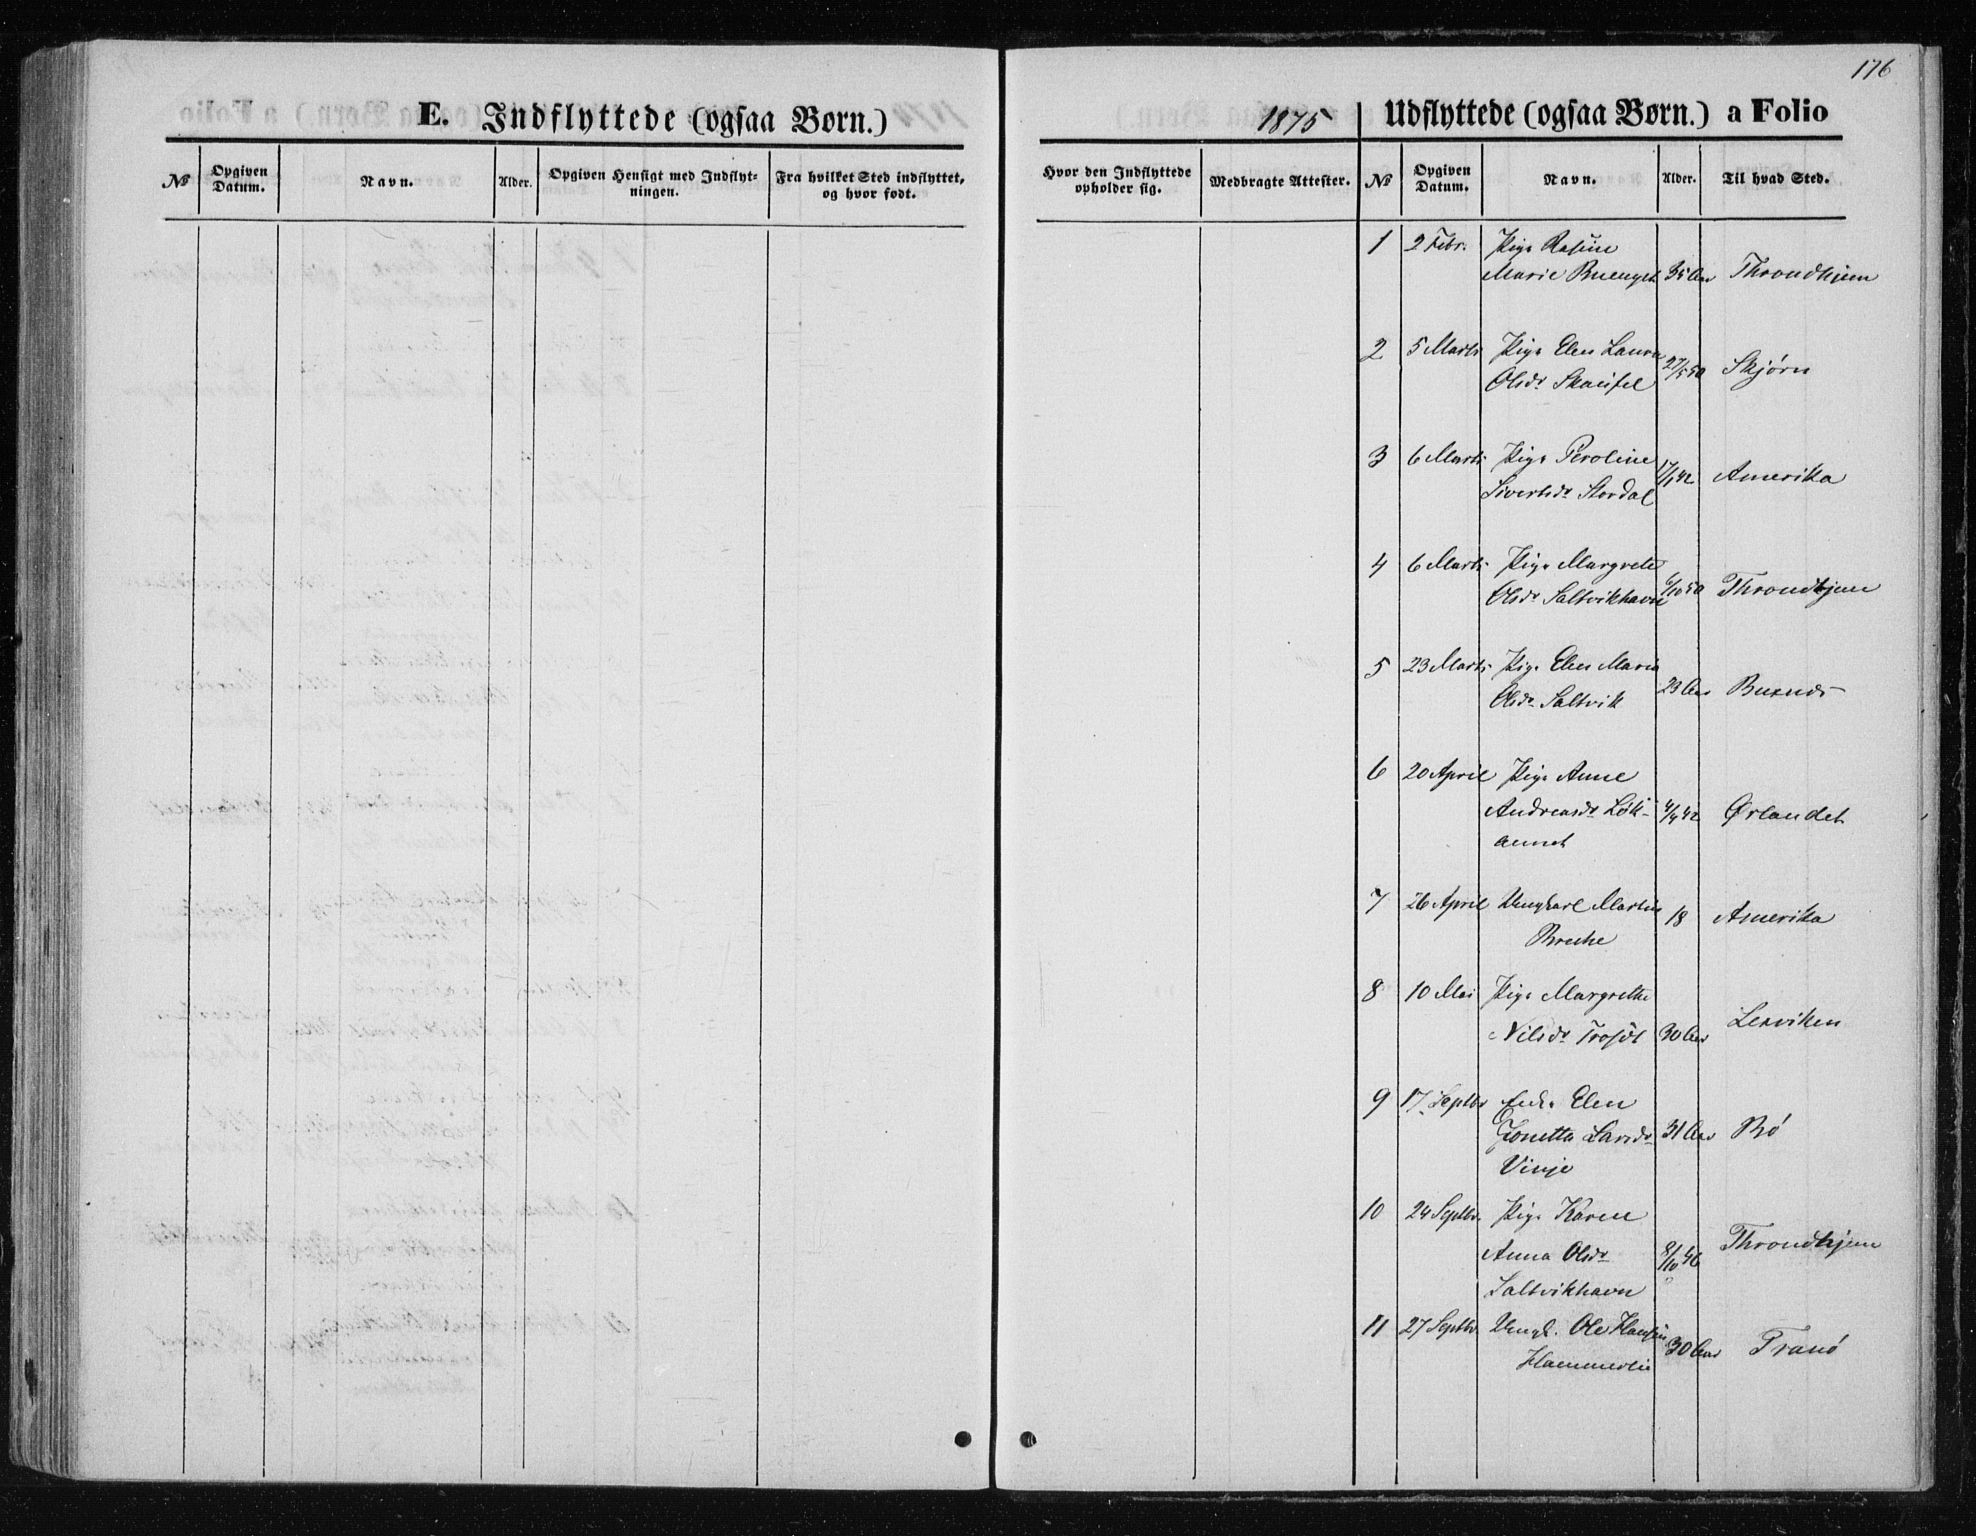 176
E. Indflyttede (ogsaa Børn.)
1875
Udflyttede (ogsaa Børn.) a Folio
№ Opgiven Datum. Navn. Alder. Opgiven Hensigt med Indflyt-ningen. Fra hvilket Sted indflyttet, og hvor født.
Hvor den Indflyttede opholder sig. Medbragte Attester. № Opgiven Datum. Navn. Alder. Til hvad Sted.
1 2 Febr. Pige Rasine
Marie 35 Aar Throndhjem
2 5 Marts Pige Elen Laura
Olsdr 27/5 50 Skjørn
3 6 Marts Pige Peroline
Sivertsdr Stordal 17/1 42 Amerika
4 6 Marts Pige Margrete
Olsdr Saltvikhavn 6/10 50 Throndhjem
5 23 Marts Pige Elen Maria
Olsdr Saltvik 23 Aar
6 20 April Pige Anne
Andreasdr Løk- 4/4 42 Ørlandet
aunet
7 26 April Ungkarl Martin
18 Amerika
8 10 Mai Pige Margrethe
Nilsdr 30 Aar Lexviken
9 17 Septbr Enke Elen
Jonetta Larsdr 31 Aar
Vinje
10 24 Septbr. Pige Karen
Anna Olsdr 8/10 46 Throndhjem
Saltvikhavn
11 27 Septbr Ungk. Ole Hansen
Hammerlie 30 Aar Tranø